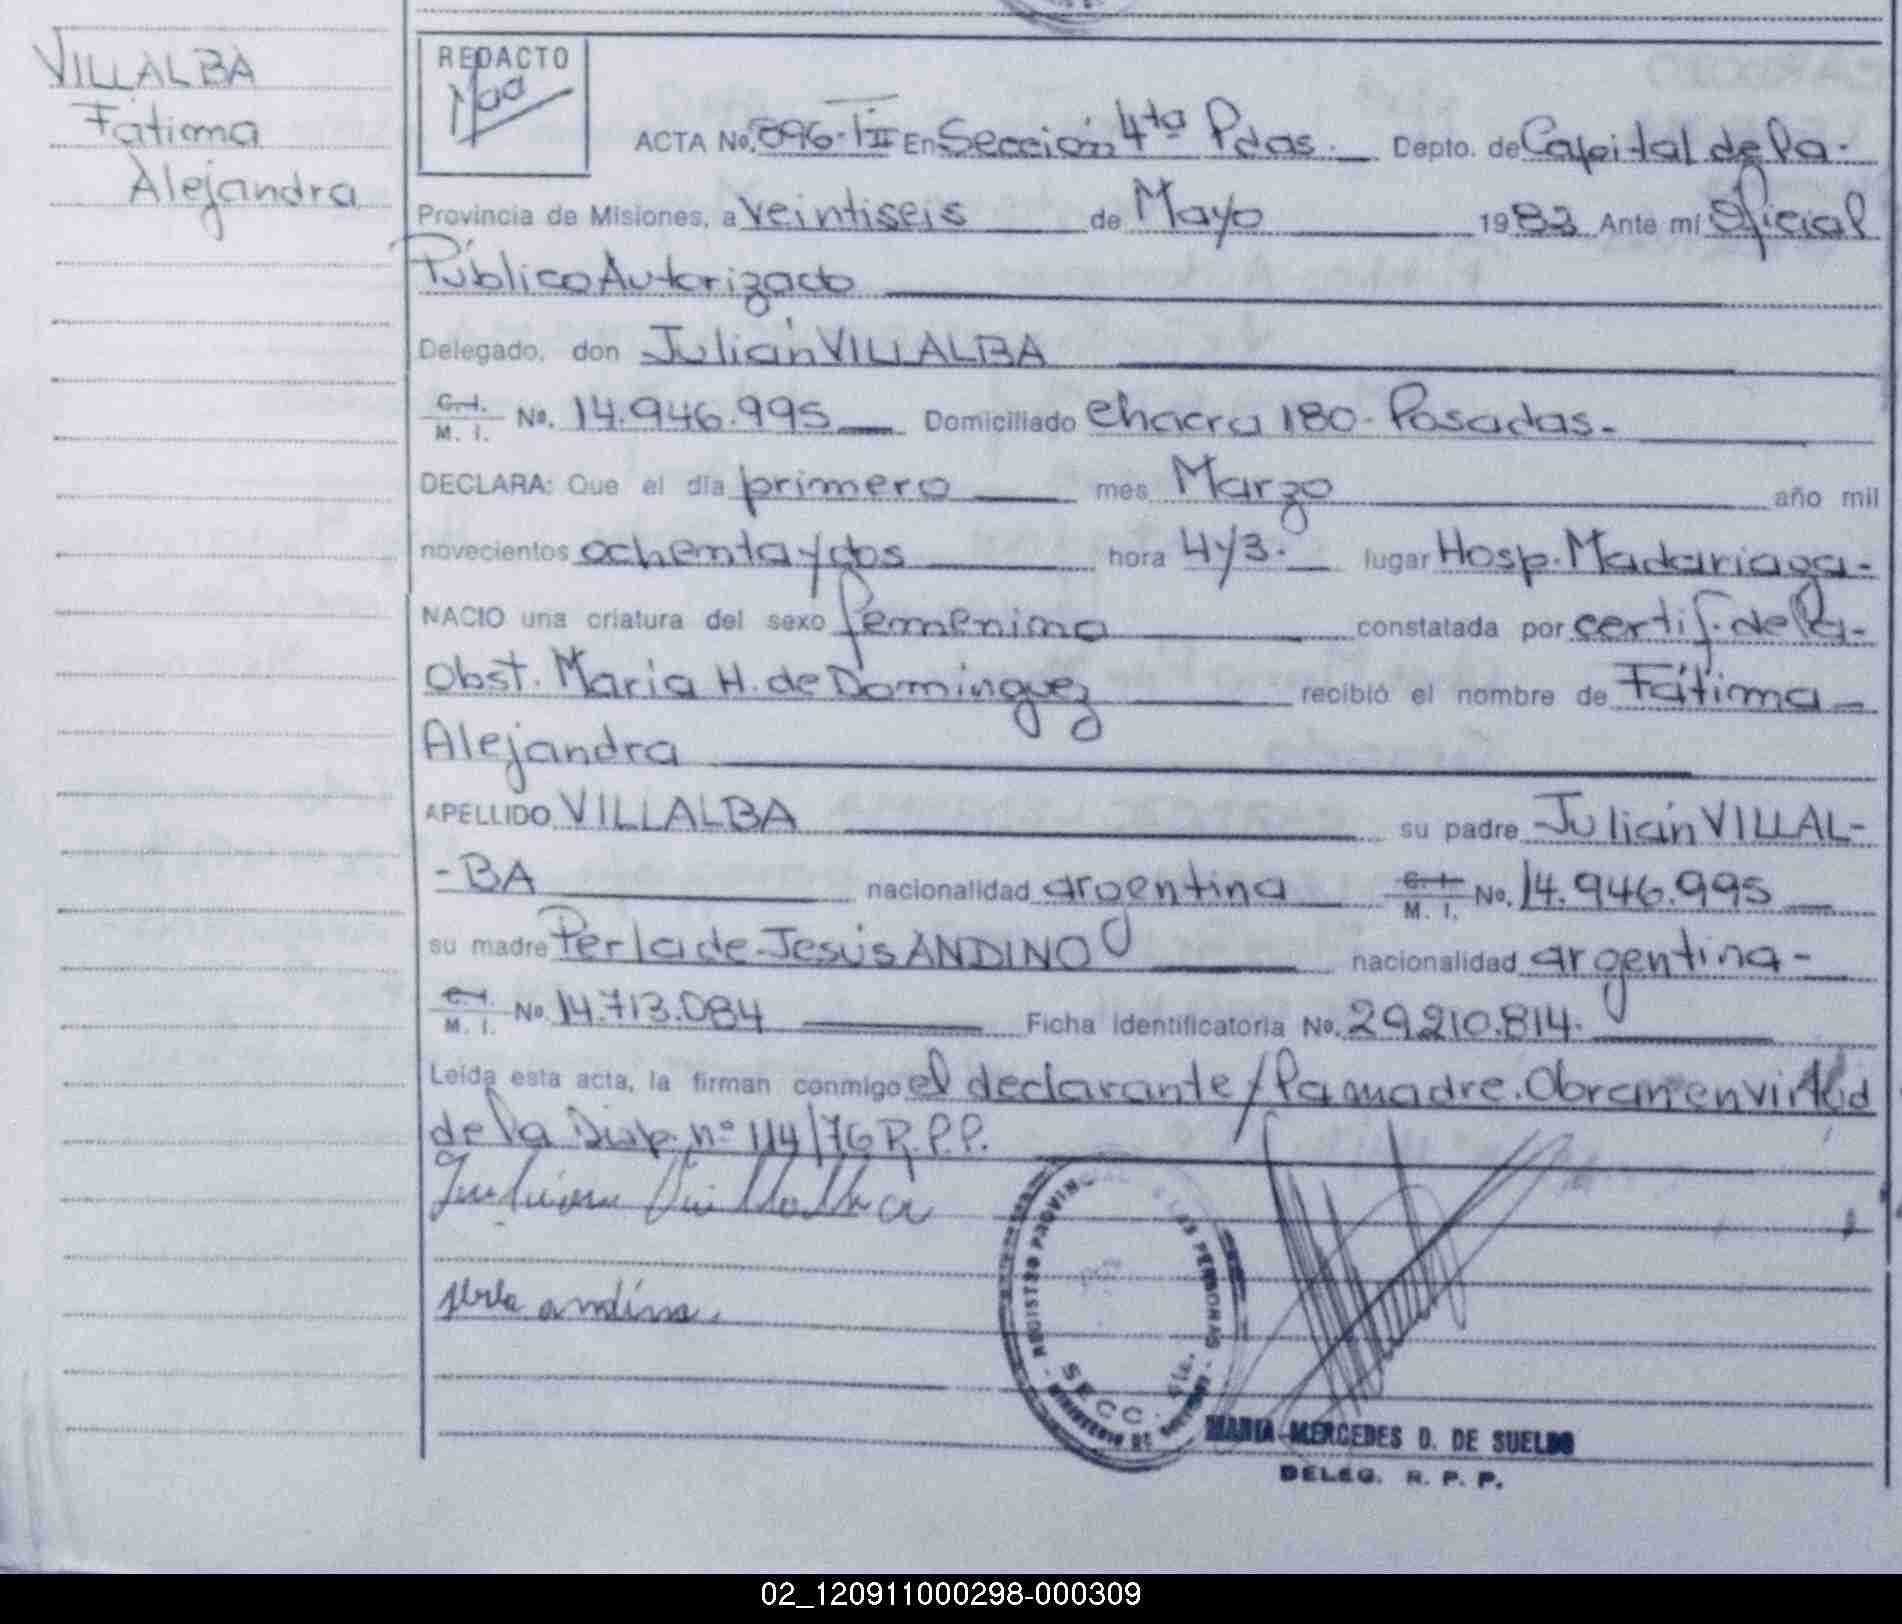 VILLALBA
Fátima
Alejandra
REDACTO
ACTA No. 896-TII En Sección 4ta Pdas. Depto. de Capital de la
Provincia de Misiones, a veintiseis de Mayo 1983 Ante mí Oficial
Público Autorizado
Delegado, don Julián VILLALBA
C.I. M. I. No. 14.946.995 Domiciliado Chacra 180 - Posadas.-
DECLARA: Que el día primero mes Marzo año mil
novecientos ochenta y dos hora 4 y 3. lugar Hosp. Madariaga-
NACIO una criatura del sexo femenino constatada por certif. de la-
Obst. Maria H. de Dominguez recibió el nombre de Fátima
Alejandra
APELLIDO VILLALBA su padre Julián VILLAL-
-BA nacionalidad argentina C.I. M. I. No. 14.946.995
su madre Perla de Jesús ANDINO nacionalidad argentina-
C.I. M. I. No. 14.713.084 Ficha identificatoria No. 29.210.814.
Leída esta acta, la firman conmigo el declarante y la madre. Obran en virtud
de la Disp. nº 114/76 R.P.P.
Julian Villalba
perla andino.
REGISTRO PROVINCIAL DE LAS PERSONAS
SECC. 4ta.
MINISTERIO DE
MARIA MERCEDES D. DE SUELDO
DELEG. R. P. P.
02_120911000298-000309